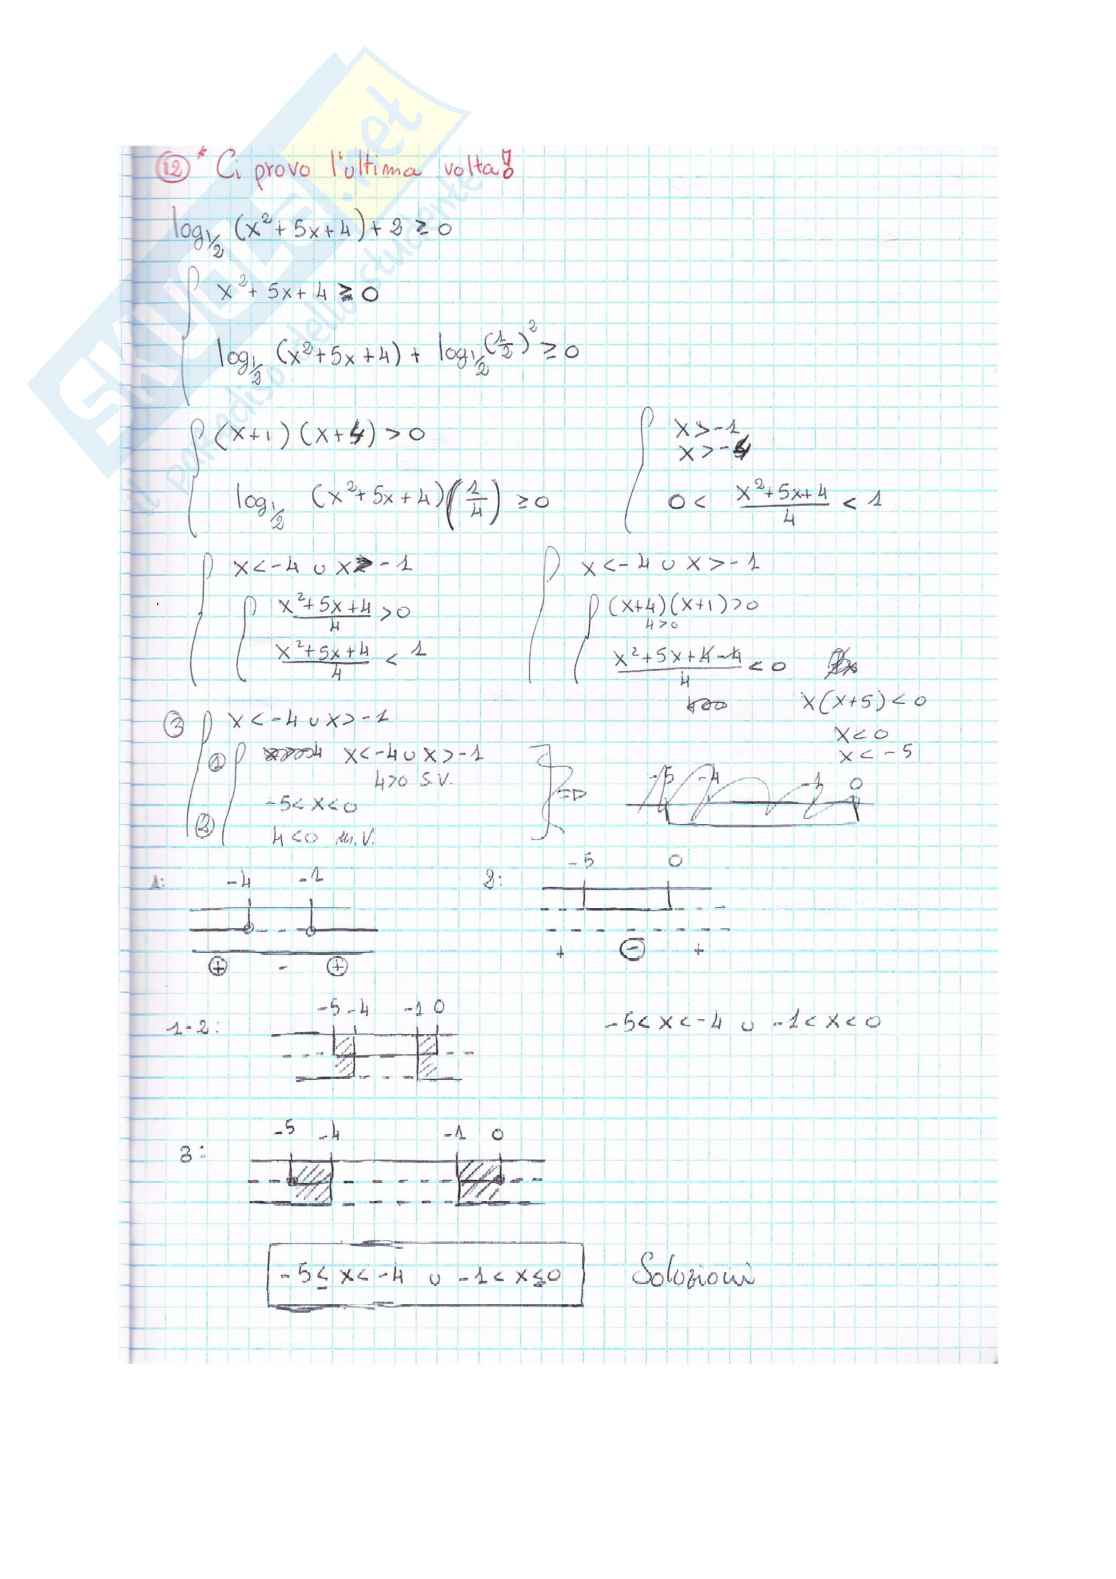 SKUOLA.net
il paradiso dello studente
12 * Ci provo l'ultima volta!
log1/2 (x²+5x+4)+2 ≥ 0
x²+5x+4 ≥ 0
log1/2 (x²+5x+4) + log1/2 (1/2)² ≥ 0
(x+1)(x+4) > 0
log1/2 (x²+5x+4)(1/4) ≥ 0
x > -1
x > -4
0 < (x²+5x+4)/4 < 1
x < -4 ∪ x > -1
(x²+5x+4)/4 > 0
(x²+5x+4)/4 < 1
x < -4 ∪ x > -1
(x+4)(x+1) > 0
4>0
(x²+5x+4-4)/4 < 0
x(x+5) < 0
x < 0
x < -5
3 x < -4 ∪ x > -1
1 x < -4 ∪ x > -1
4>0 S.V.
-5 < x < 0
2 4<0 m.V.
-5 -4 -1 0
1: -4 -1
+ - +
2: -5 0
+ - +
1-2: -5 -4 -1 0
-5 < x < -4 ∪ -1 < x < 0
3: -5 -4 -1 0
-5 ≤ x < -4 ∪ -1 < x ≤ 0 Soluzioni